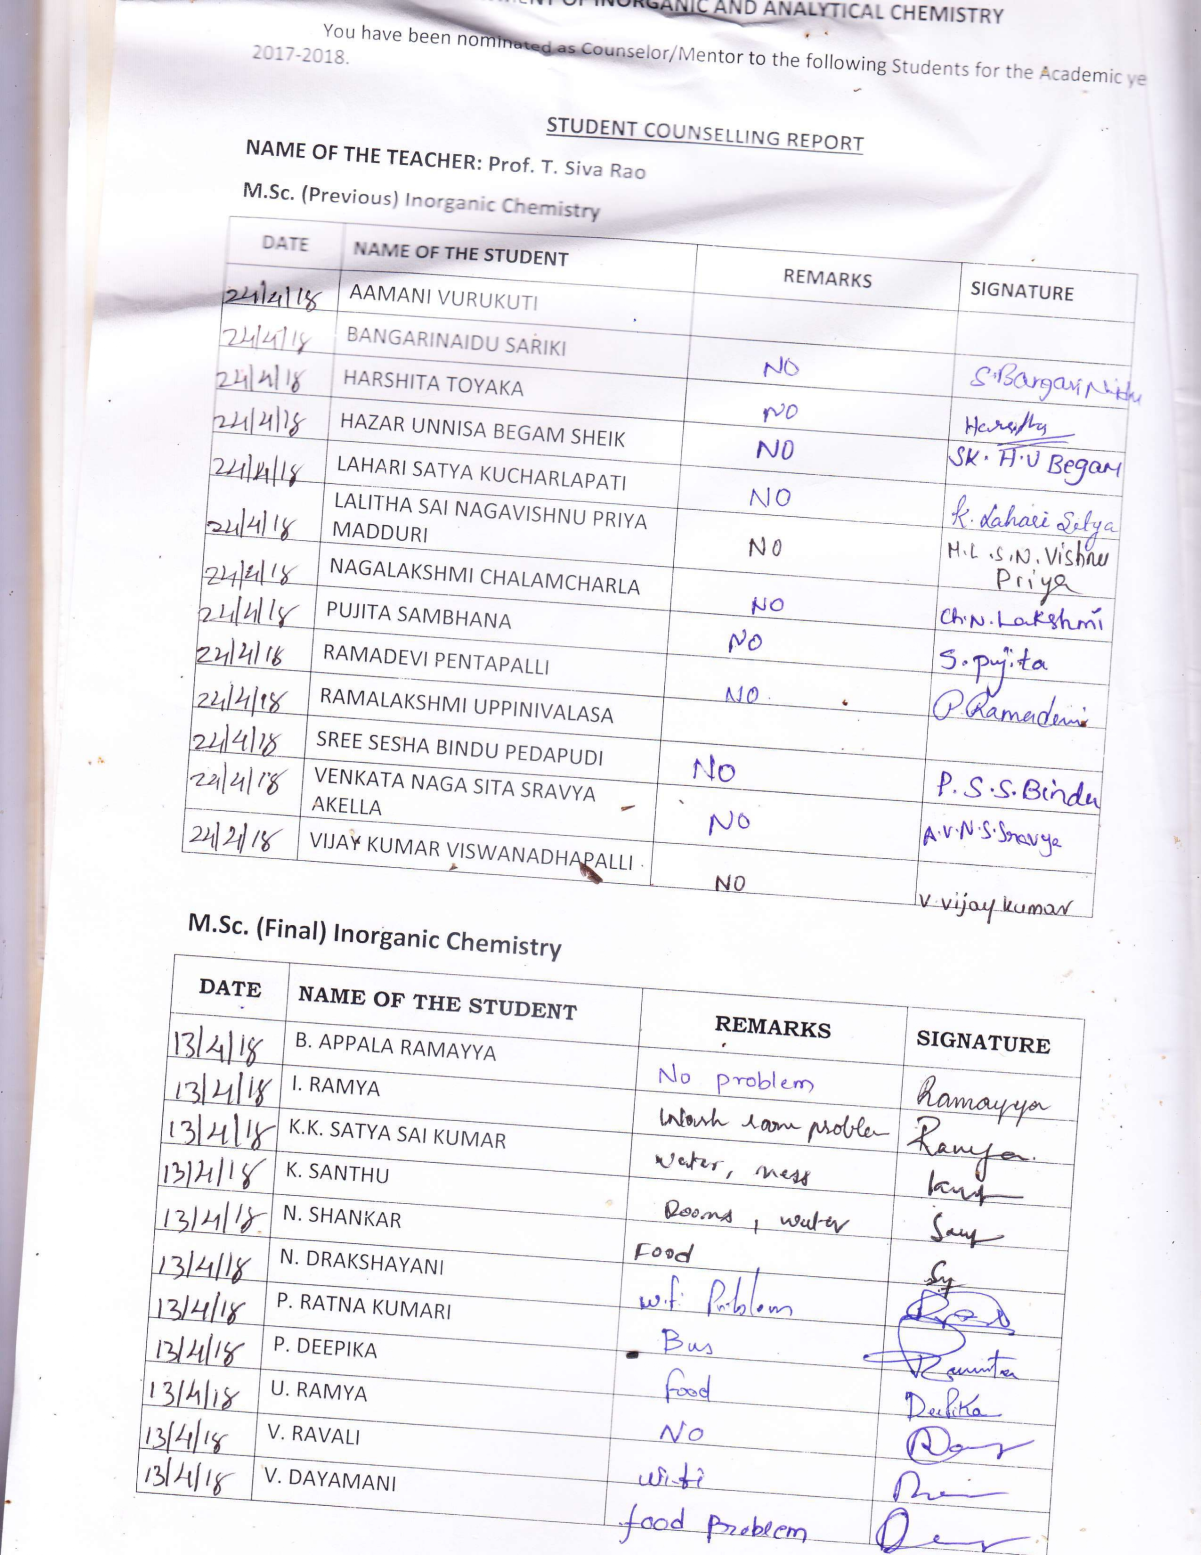 OF INORGANIC AND ANALYTICAL CHEMISTRY
You have been nominated as Counselor/Mentor to the following Students for the Academic ye
2017-2018.
STUDENT COUNSELLING REPORT
NAME OF THE TEACHER: Prof. T. Siva Rao
M.Sc. (Previous) Inorganic Chemistry
DATE NAME OF THE STUDENT REMARKS SIGNATURE
24/4/18 AAMANI VURUKUTI
24/4/18 BANGARINAIDU SARIKI NO S.Bangari Naidu
24/4/18 HARSHITA TOYAKA NO Harshita
24/4/18 HAZAR UNNISA BEGAM SHEIK NO SK. H.U Begam
24/4/18 LAHARI SATYA KUCHARLAPATI NO K. Lahari Satya
24/4/18 LALITHA SAI NAGAVISHNU PRIYA
MADDURI NO M.L.S.N. Vishnu
Priya
24/4/18 NAGALAKSHMI CHALAMCHARLA NO Ch.N. Lakshmi
24/4/18 PUJITA SAMBHANA NO S. pujita
24/4/18 RAMADEVI PENTAPALLI NO. P.Ramadevi
24/4/18 RAMALAKSHMI UPPINIVALASA
24/4/18 SREE SESHA BINDU PEDAPUDI NO P.S.S.Bindu
24/4/18 VENKATA NAGA SITA SRAVYA
AKELLA NO A.V.N.S.Sravya
24/2/18 VIJAY KUMAR VISWANADHAPALLI NO V.vijay kumar
M.Sc. (Final) Inorganic Chemistry
DATE NAME OF THE STUDENT REMARKS SIGNATURE
13/4/18 B. APPALA RAMAYYA No problem Ramayya
13/4/18 I. RAMYA Wash room problem Ramya.
13/4/18 K.K. SATYA SAI KUMAR water, mess
13/4/18 K. SANTHU Rooms, water
13/4/18 N. SHANKAR Food
13/4/18 N. DRAKSHAYANI wifi Problem
13/4/18 P. RATNA KUMARI Bus
13/4/18 P. DEEPIKA food Deepika
13/4/18 U. RAMYA NO
13/4/18 V. RAVALI wifi
13/4/18 V. DAYAMANI food problem